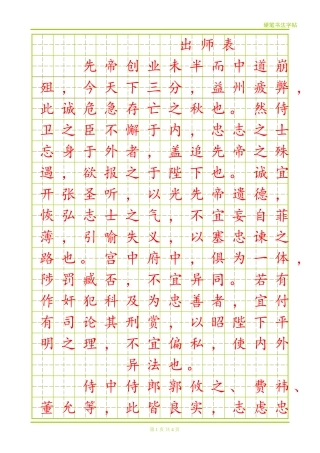 硬笔书法字帖
出师表
先帝创业未半而中道崩
殂，今天下三分，益州疲弊，
此诚危急存亡之秋也。然侍
卫之臣不懈于内，忠志之士
忘身于外者，盖追先帝之殊
遇，欲报之于陛下也。诚宜
开张圣听，以光先帝遗德，
恢弘志士之气，不宜妄自菲
薄，引喻失义，以塞忠谏之
路也。宫中府中，俱为一体，
陟罚臧否，不宜异同。若有
作奸犯科及为忠善者，宜付
有司论其刑赏，以昭陛下平
明之理，不宜偏私，使内外
异法也。
侍中侍郎郭攸之、费祎、
董允等，此皆良实，志虑忠
第1页共4页